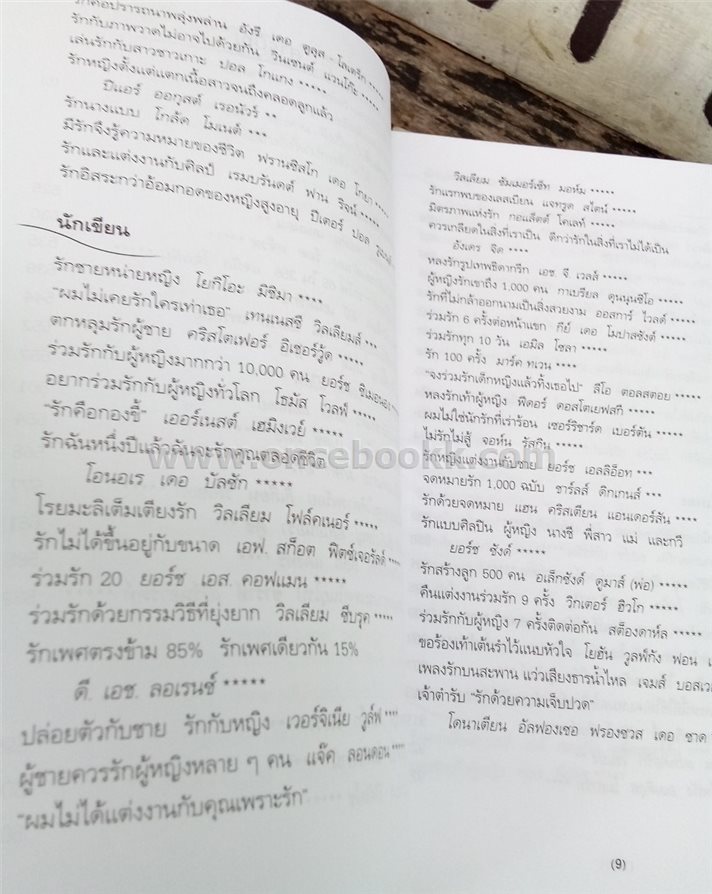 รักคือปรารถนาพลุ่งพล่าน อังรี เดอ ตูลูส - โลเตร็ก
รักกับภาพวาดไม่อาจไปด้วยกัน วินเซนต์ แวนโก๊ะ *****
เล่นรักกับสาวชาวเกาะ ปอล โกแกง *****
รักหญิงตั้งแต่แตกเนื้อสาวจนถึงคลอดลูกแล้ว
ปิแอร์ ออกุสต์ เรอนัวร์ **
รักนางแบบ โกล้ด โมเนต์ ***
มีรักจึงรู้ความหมายของชีวิต ฟรานซิสโก เดอ โกยา
รักและแต่งงานกับศิลป์ เรมบรันดต์ ฟาน ริจน์ *****
รักอิสระกว่าอ้อมกอดของหญิงสูงอายุ ปีเตอร์ ปอล
นักเขียน
รักชายหน่ายหญิง โยกิโอะ มิชิมา ****
"ผมไม่เคยรักใครเท่าเธอ" เทนเนสซี วิลเลียมส์ ***
ตกหลุมรักผู้ชาย คริสโตเฟอร์ อิเชอร์วู้ด *****
ร่วมรักกับผู้หญิงมากกว่า 10,000 คน ยอร์ช ซิเมอนอง
อยากร่วมรักกับผู้หญิงทั่วโลก โธมัส โวลฟ์ *****
"รักคือกองขี้" เออร์เนสต์ เฮมิงเวย์ *****
รักฉันหนึ่งปีแล้วฉันจะรักคุณตลอดชีวิต
โอนอเร เดอ บัลซัก *****
โรยมะลิเต็มเตียงรัก วิลเลียม โฟล์คเนอร์ *****
รักไม่ได้ขึ้นอยู่กับขนาด เอฟ. สก็อต ฟิตซ์เจอรัลด์ ****
ร่วมรัก 20 ยอร์ช เอส. คอฟแมน *****
ร่วมรักด้วยกรรมวิธีที่ยุ่งยาก วิลเลียม ซีบรุค *****
รักเพศตรงข้าม 85% รักเพศเดียวกัน 15%
ดี. เอช. ลอเรนซ์ *****
ปล่อยตัวกับชาย รักกับหญิง เวอร์จิเนีย วูล์ฟ ****
ผู้ชายควรรักผู้หญิงหลาย ๆ คน แจ๊ค ลอนดอน ****
"ผมไม่ได้แต่งงานกับคุณเพราะรัก"
วิลเลียม ซัมเมอร์เซ็ท มอห์ม *****
รักแรกพบของเลสเบียน แจทรูด สไตน์ *****
มิตรภาพแห่งรัก กอแล็ตต์ โคเลท์ *****
ควรเกลียดในสิ่งที่เราเป็น ดีกว่ารักในสิ่งที่เราไม่ได้เป็น
อังเดร จิด ****
หลงรักรูปเทพธิดากรีก เอช. จี. เวลส์ *****
ผู้หญิงรักเขาถึง 1,000 คน กาเบรียล ดุนนุนซิโอ *****
รักที่ไม่กล้าออกนามเป็นสิ่งสวยงาม ออสการ์ ไวลด์ *****
ร่วมรัก 6 ครั้งต่อหน้าแขก กีย์ เดอ โมปาสซังต์ *****
ร่วมรักทุก 10 วัน เอมิล โซลา *****
รัก 100 ครั้ง มาร์ค ทเวน ****
"จงร่วมรักเด็กหญิงแล้วทิ้งเธอไป" ลีโอ ตอลสตอย *****
หลงรักเท้าผู้หญิง ฟีดอร์ ดอสโตเยฟสกี *****
ผมไม่ใช่นักรักที่เร่าร้อน เซอร์ริชาร์ด เบอร์ตัน *****
ไม่รักไม่สู้ จอห์น รัสกิน *****
รักหญิงแต่งงานกับชาย ยอร์ช เอลลิอ็อท ***
จดหมายรัก 1,000 ฉบับ ชาร์ลส์ ดิกเกนส์ ***
รักด้วยจดหมาย แฮน คริสเตียน แอนเดอร์สัน ****
รักแบบศิลปิน ผู้หญิง นางชี พี่สาว แม่ และกวี
ยอร์ช ซังด์ *****
รักสร้างลูก 500 คน อเล็กซังด์ ดูมาส์ (พ่อ) *****
คืนแต่งงานร่วมรัก 9 ครั้ง วิกเตอร์ ฮิวโก *****
ร่วมรักกับผู้หญิง 7 ครั้งติดต่อกัน สต็องดาห์ล *****
ขอร้องเท้าเต้นรำไว้แนบหัวใจ โยฮัน วูลฟ์กัง ฟอน
เพลงรักบนสะพาน แว่วเสียงธารน้ำไหล เจมส์ บอสเวล
เจ้าตำรับ "รักด้วยความเจ็บปวด"
โดนาเตียน อัลฟองเซอ ฟรองซวส เดอ ซาด
(9)